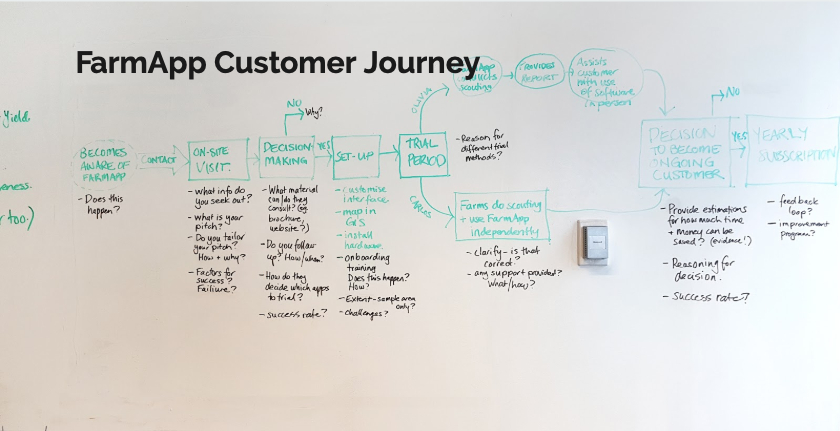 FarmApp Customer Journey
Yield.
too.)
BECOMES
AWARE OF
FARMAPP
- Does this
happen?
CONTACT
ON-SITE
VISIT.
- what info do
you seek out?
- what is your
pitch?
- Do you tailor
your pitch?
How + why?
- Factors for
success?
Failure?
NO
Why?
DECISION
MAKING
YES
- What material
can/do they
consult? (eg.
brochure,
website?)
- Do you follow
up? How/when?
- How do they
decide which apps
to trial?
- success rate?
SET-UP
- customise
interface.
- map in
GIS
- install
hardware.
- onboarding
training
Does this happen?
How?
- Extent - sample area
only?
- challenges?
TRIAL
PERIOD
- Reason for
different trial
methods?
OLIVIA
conducts
scouting
PROVIDES
REPORT
Assists
customer
with use
of software
in person
Farms do scouting
+ use FarmApp
independently
- clarify - is that
correct?
- any support provided?
What/how?
NO
DECISION
TO BECOME
ONGOING
CUSTOMER
YES
- Provide estimations
for how much time
+ money can be
saved? (evidence!)
- Reasoning for
decision.
- success rate?
YEARLY
SUBSCRIPTION
- feedback
loop?
- improvement
program?